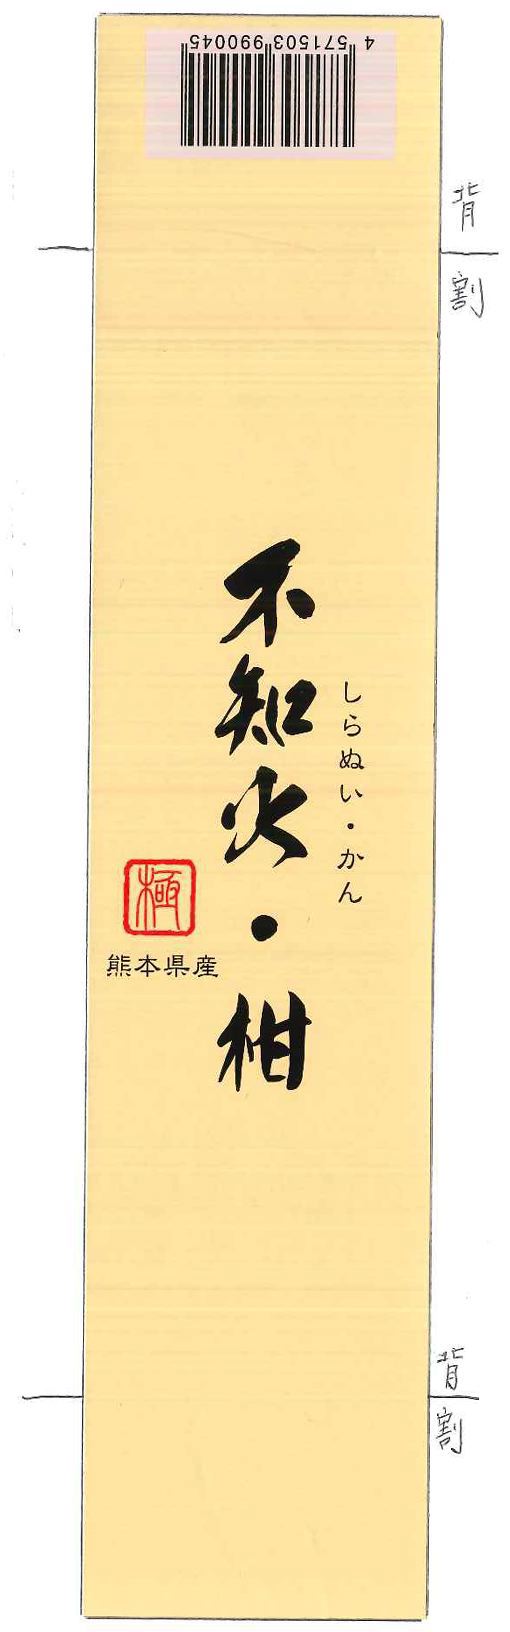 4 571503 990045
背
割
不知火・柑
しらぬい・かん
極
熊本県産
背
割